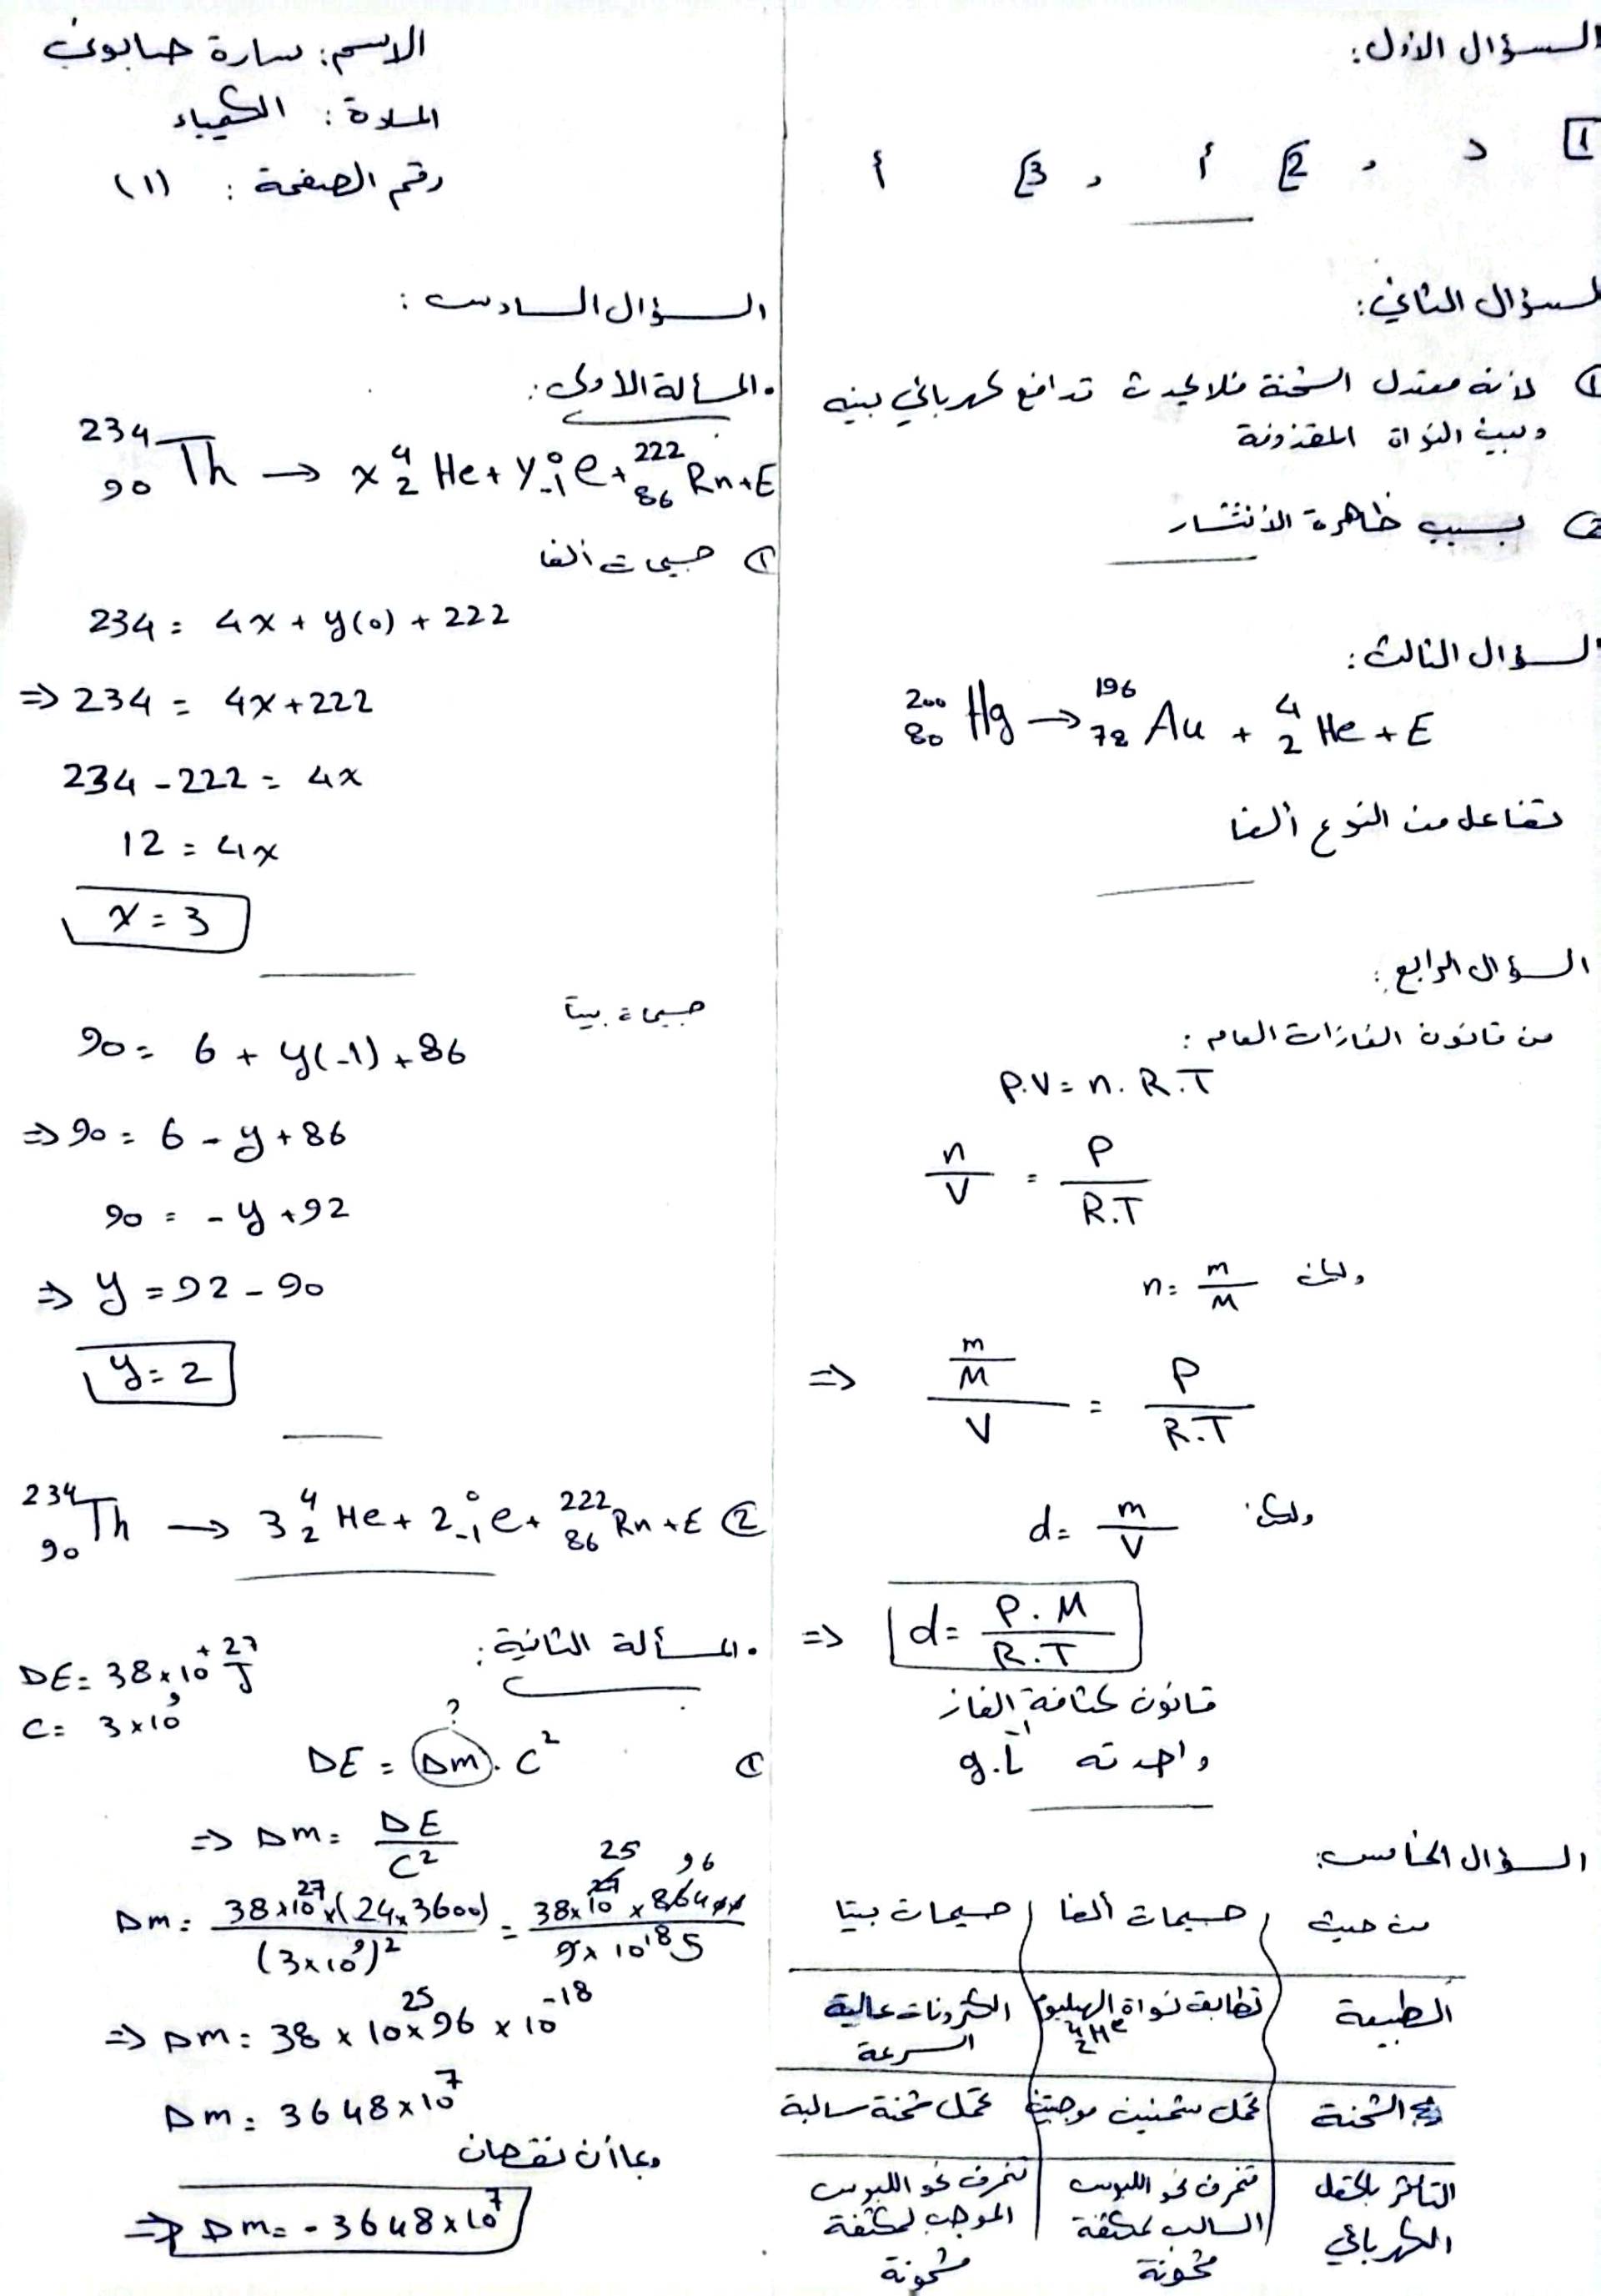 السؤال الأول:
1 د , 2 أ , 3 أ
السؤال الثاني:
1 لأنه معتدل الشحنة فلا يحدث تدافع كهربائي بينه
وبين النواة المقذوفة
2 بسبب ظاهرة الأنتشار
السؤال الثالث:
²⁰⁰₈₀Hg → ¹⁹⁶₇₈Au + ⁴₂He + E
تفاعل من النوع ألفا
السؤال الرابع:
من قانون الغازات العام:
P.V = n.R.T
n/V = P/R.T
ولكن n = m/M
⇒ (m/M)/V = P/R.T
ولكن d = m/V
⇒ d = P.M/R.T
قانون كثافة الغاز
واحدته g.L⁻¹
السؤال الخامس:
من حيث | جسيمات ألفا | جسيمات بيتا
الطبيعة | تطابق نواة الهيليوم ⁴₂He | الكترونات عالية السرعة
الشحنة | تحمل شحنتين موجبتين | تحمل شحنة سالبة
التأثر بالحقل الكهربائي | تنحرف نحو اللبوس السالب لمكثفة مشحونة | تنحرف نحو اللبوس الموجب لمكثفة مشحونة
الاسم: سارة صابوني
المادة: الكيمياء
رقم الصفحة: (1)
السؤال السادس:
المسألة الاولى:
²³⁴₉₀Th → x ⁴₂He + y ⁰₋₁e + ²²²₈₆Rn + E
1 جسيمات ألفا
234 = 4x + y(0) + 222
⇒ 234 = 4x + 222
234 - 222 = 4x
12 = 4x
x = 3
جسيمات بيتا
90 = 6 + y(-1) + 86
⇒ 90 = 6 - y + 86
90 = - y + 92
⇒ y = 92 - 90
y = 2
²³⁴₉₀Th → 3 ⁴₂He + 2 ⁰₋₁e + ²²²₈₆Rn + E 2
المسألة الثانية:
ΔE = 38×10⁺²⁷ J
C = 3×10⁹
?
1 ΔE = Δm . C²
⇒ Δm = ΔE/C²
Δm = 38×10²⁷×(24×3600)/(3×10⁹)² = 38×10²⁷ ²⁵×86400 96/9×10¹⁸ 5
⇒ Δm = 38 × 10²⁵ × 96 × 10⁻¹⁸
Δm = 3648×10⁷
وبما أن نقصان
⇒ Δm = - 3648×10⁷